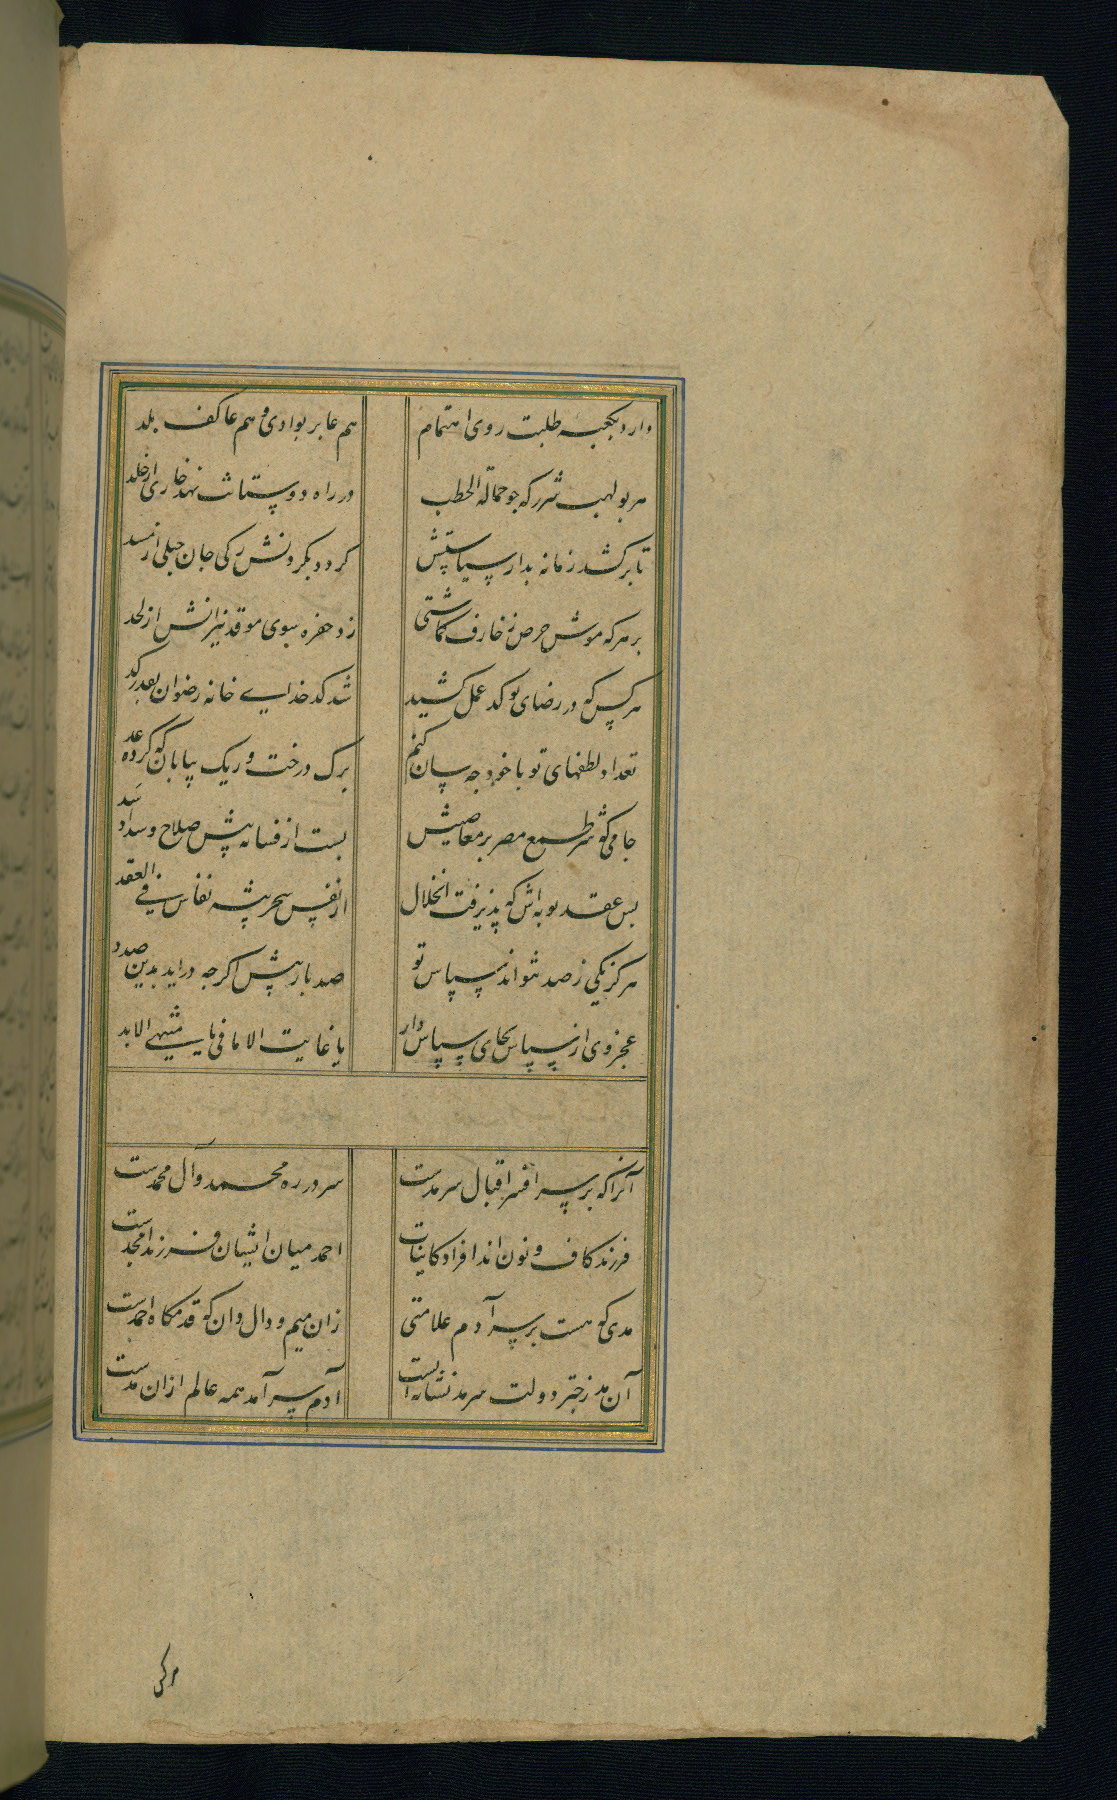 دارد بکعبه طلبت روی اهتمام هم عابر بوادی و هم عاکف بلد
هر بولهب شرر که چو حمالة الحطب در راه دوستانت نهد خاری از خلد
تا برکشد زمانه بدار سیاستش کردد بکردنش رکی جان حبلی از مسد
بر هر که موش حرص زخارف کماشتی زد حفره بسوی موقد نیرانش از لحد
هر کس که در رضای تو کد عمل کشید شد کدخدایی خانه رضوان بعد کد
تعداد لطفهای تو با خود چه سان کنم برک درخت و ریک بیابان که کرده عد
جامی که شد طمع مصر بر معاصیش بست از فسانه پیش صلاح و سداد سد
بس عقد توبه اش که پذیرفت انحلال از نفس سحر پیشه نفاس فی العقد
هرکز یکی ز صد نتواند سپاس تو صد بار پیش اکرچه دراید بدین صدد
عجز وی از سپاس بجای سپاس دار یا غایت الامانی یا منتهی الابد
آنرا که بر سر افسر اقبال سرمدست سر در ره محمد و آل محمدست
فرزند کاف و نون اند افراد کاینات احمد میان ایشان فرزند امجدست
مدی که هست بر سر آدم علامتی زان میم و دال دان که قدمکاه احمدست
آن مد ز چتر دولت سرمد نشانه ایست آدم سر آمد همه عالم ازان مدست